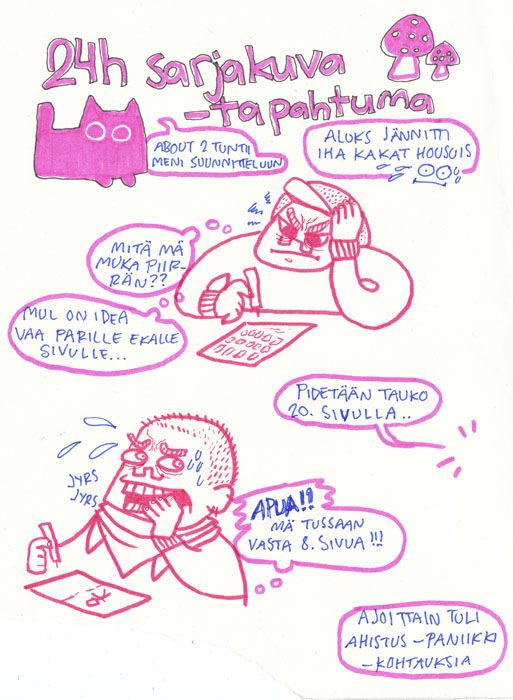 24h sarjakuva
-tapahtuma
ABOUT 2 TUNTII
MENI SUUNNITTELUUN
ALUKS JÄNNITTI
IHA KAKAT HOUSUIS
MITÄ MÄ
MUKA PIIR-
RÄN??
MUL ON IDEA
VAA PARILLE EKALLE
SIVULLE...
PIDETÄÄN TAUKO
20. SIVULLA..
JYRS
JYRS
APUA!!
MÄ TUSSAAN
VASTA 8. SIVUA!!!
AJOITTAIN TULI
AHISTUS-PANIIKKI
-KOHTAUKSIA